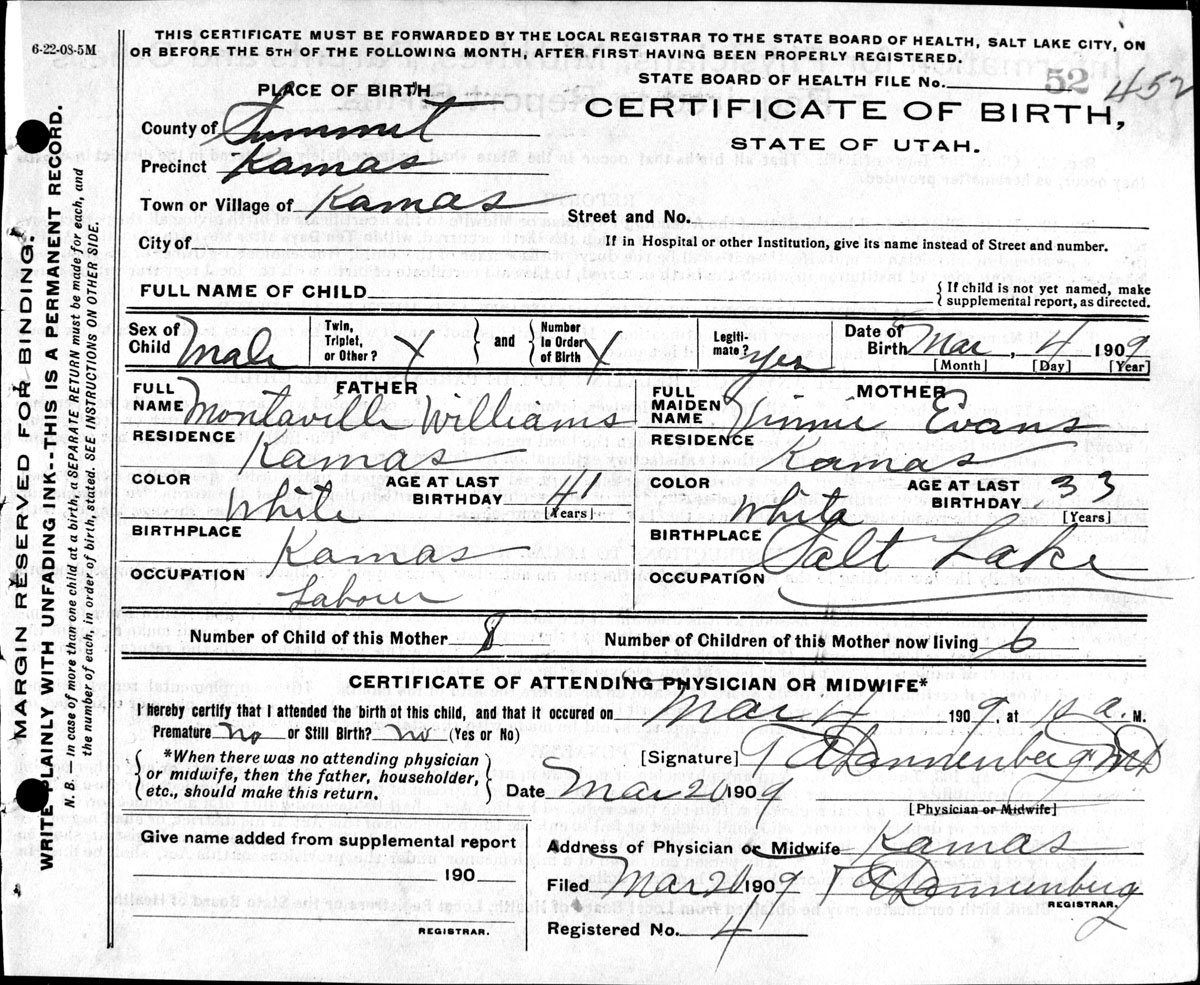 6-22-08-5M
THIS CERTIFICATE MUST BE FORWARDED BY THE LOCAL REGISTRAR TO THE STATE BOARD OF HEALTH, SALT LAKE CITY, ON
OR BEFORE THE 5TH OF THE FOLLOWING MONTH, AFTER FIRST HAVING BEEN PROPERLY REGISTERED.
STATE BOARD OF HEALTH FILE No. 52 452
PLACE OF BIRTH
CERTIFICATE OF BIRTH,
STATE OF UTAH.
County of Summit
Precinct Kamas
Town or Village of Kamas
Street and No.
City of
If in Hospital or other Institution, give its name instead of Street and number.
FULL NAME OF CHILD
{ If child is not yet named, make
supplemental report, as directed.
Sex of Child Male
Twin, Triplet, or Other? X } and { Number in Order of Birth X
Legiti-mate? Yes
Date of Birth Mar, 4 1909
[Month] [Day] [Year]
FATHER
FULL NAME Montaville Williams
RESIDENCE Kamas
COLOR White
AGE AT LAST BIRTHDAY 41
[Years]
BIRTHPLACE Kamas
OCCUPATION Labour
MOTHER
FULL MAIDEN NAME Vinnie Evans
RESIDENCE Kamas
COLOR White
AGE AT LAST BIRTHDAY 33
[Years]
BIRTHPLACE Salt Lake
OCCUPATION "
Number of Child of this Mother 8 Number of Children of this Mother now living 6
CERTIFICATE OF ATTENDING PHYSICIAN OR MIDWIFE*
I hereby certify that I attended the birth of this child, and that it occured on Mar 4 1909, at a. M.
Premature? No or Still Birth? No (Yes or No)
{ *When there was no attending physician
or midwife, then the father, householder,
etc., should make this return. }
[Signature] Dannenberg MD
Date Mar 20 1909
[Physician or Midwife]
Give name added from supplemental report
190
REGISTRAR.
Address of Physician or Midwife Kamas
Filed Mar 20 1909 Dannenberg
REGISTRAR.
Registered No. 4
MARGIN RESERVED FOR BINDING.
WRITE PLAINLY WITH UNFADING INK--THIS IS A PERMANENT RECORD.
N. B.—In case of more than one child at a birth a SEPARATE RETURN must be made for each, and
the number of each, in order of birth, stated. SEE INSTRUCTIONS ON OTHER SIDE.